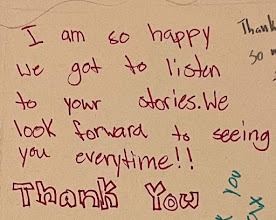 I am so happy
we got to listen
to your stories. We
look forward to seeing
you everytime!!
Thank You
Thank
so
you